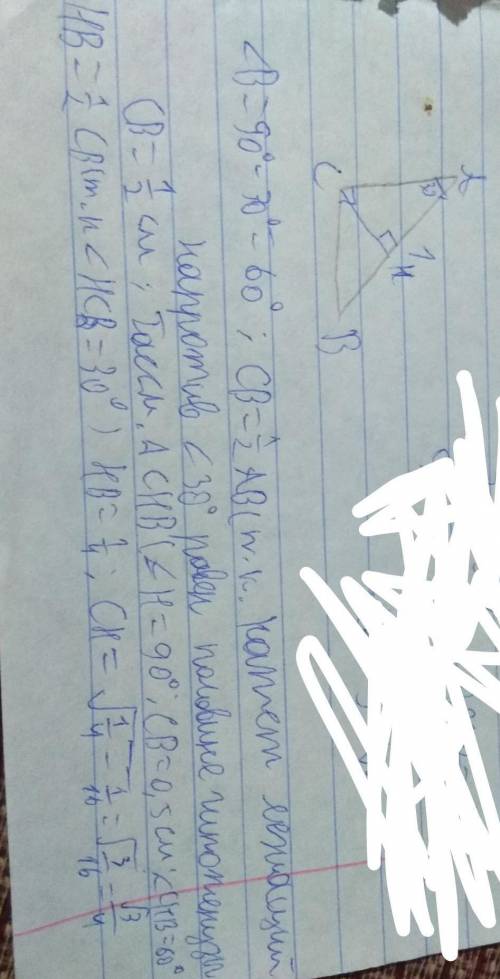 A
30°
1
H
C
B
∠B = 90° - 30° = 60°; CB = 1/2 AB (т.к. катет лежащий
напротив ∠30° равен половине гипотенузы
CB = 1/2 см; Рассм. Δ CHB (∠H = 90°; CB = 0,5 см; ∠CHB = 60°
HB = 1/2 CB (т.к ∠HCB = 30°) HB = 1/4; CH = √1/4 - 1/16 = √3/16 = √3/4